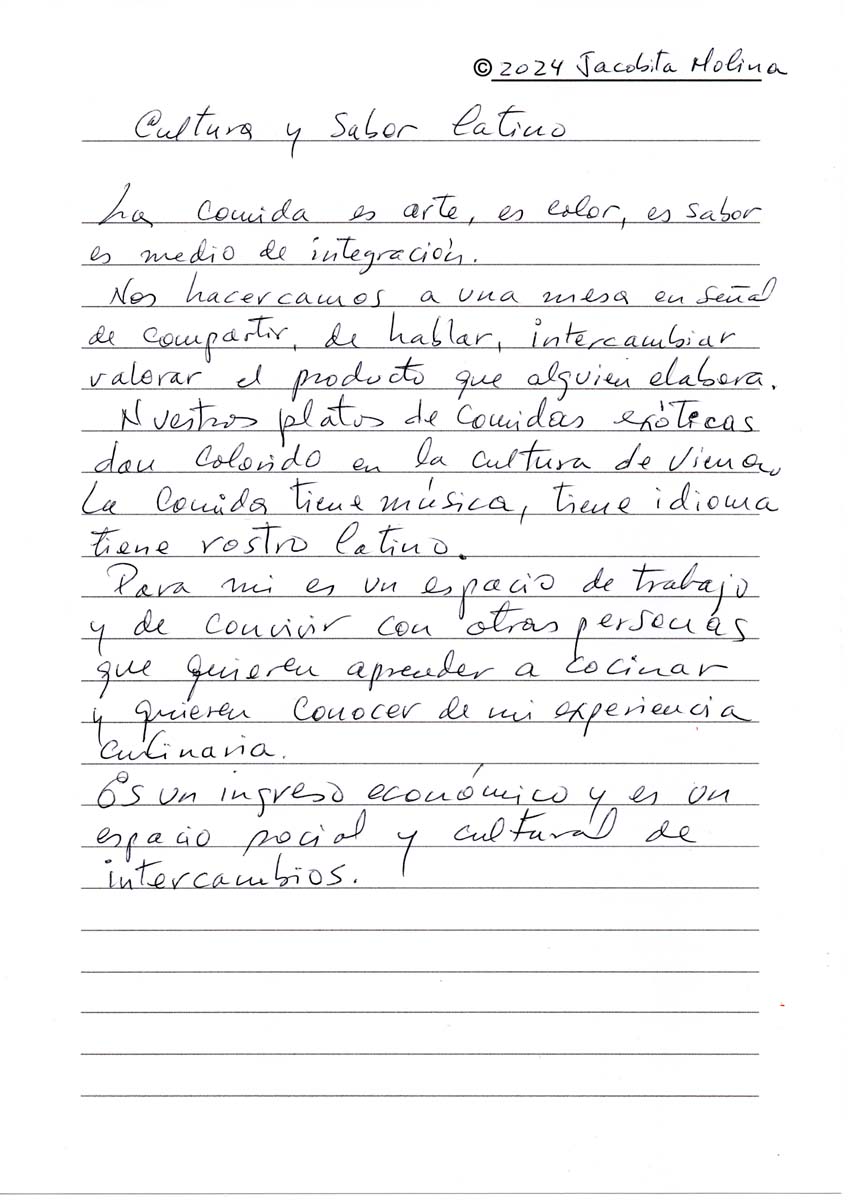 © 2024 Jacobita Molina
Cultura y Sabor latino
La comida es arte, es color, es sabor
es medio de integración.
Nos hacercamos a una mesa en señal
de compartir, de hablar, intercambiar
valorar el producto que alguien elabora.
Nuestros platos de comidas exóticas
dan colorido en la cultura de Viena.
La comida tiene música, tiene idioma
tiene rostro latino.
Para mi es un espacio de trabajo
y de convivir con otras personas
que quieren aprender a cocinar
y quieren conocer de mi experiencia
culinaria.
Es un ingreso económico y es un
espacio social y cultural de
intercambios.